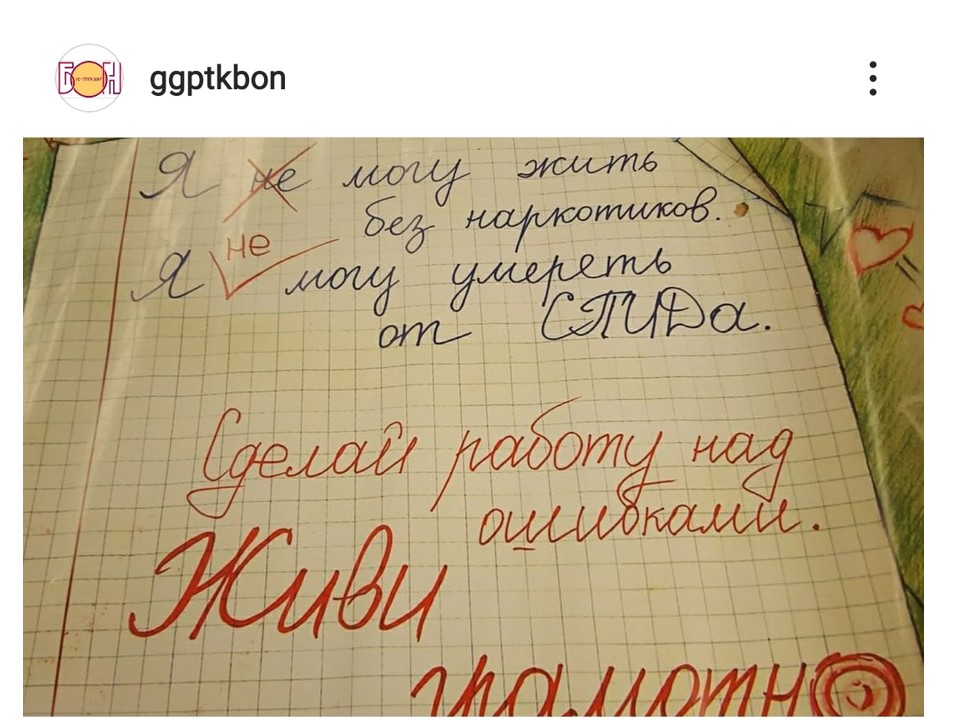 ggptkbon
Я не могу жить
без наркотиков.
не
Я могу умереть
от СПИДа.
Сделай работу над
ошибками.
Живи
грамотно